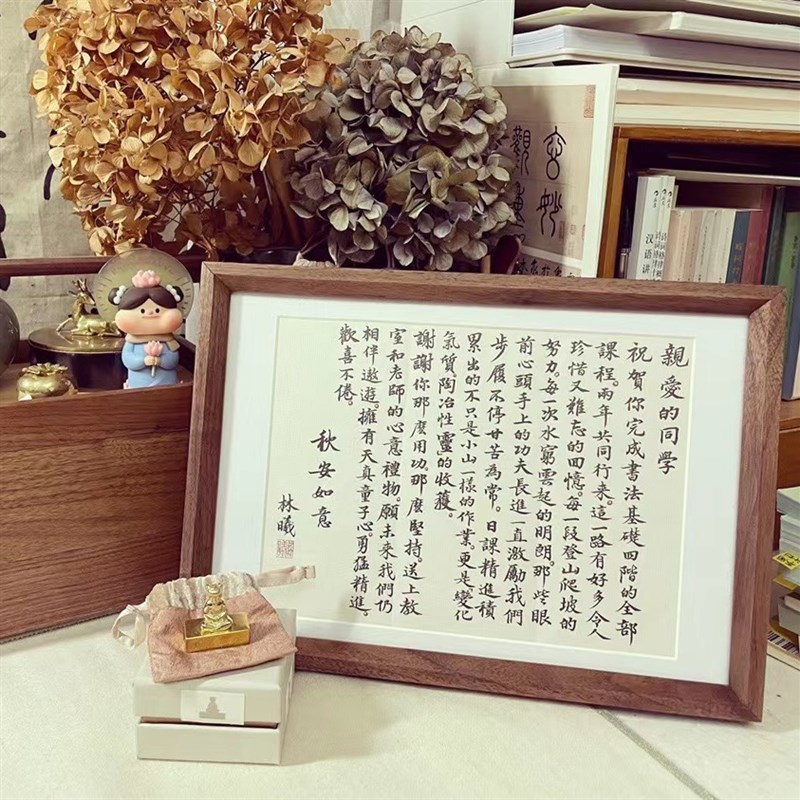 親愛的同學
祝賀你完成書法基礎四階的全部
課程。兩年共同行来。這一路有好多令人
珍惜又難忘的回憶。每一段登山爬坡的
努力。每一次水窮雲起的明朗。那些眼
前心頭手上的功夫長進一直激勵我們
步履不停甘苦為常。日課精進積
累出的不只是小山一樣的作業。更是變化
氣質陶冶性靈的收穫。
謝謝你那麼用功。那麼堅持。送上教
室和老師的心意禮物。願未来我們仍
相伴遨遊。擁有天真童子心。勇猛精進。
歡喜不倦。
秋安如意
林曦
玄妙
觀重
汉语讲